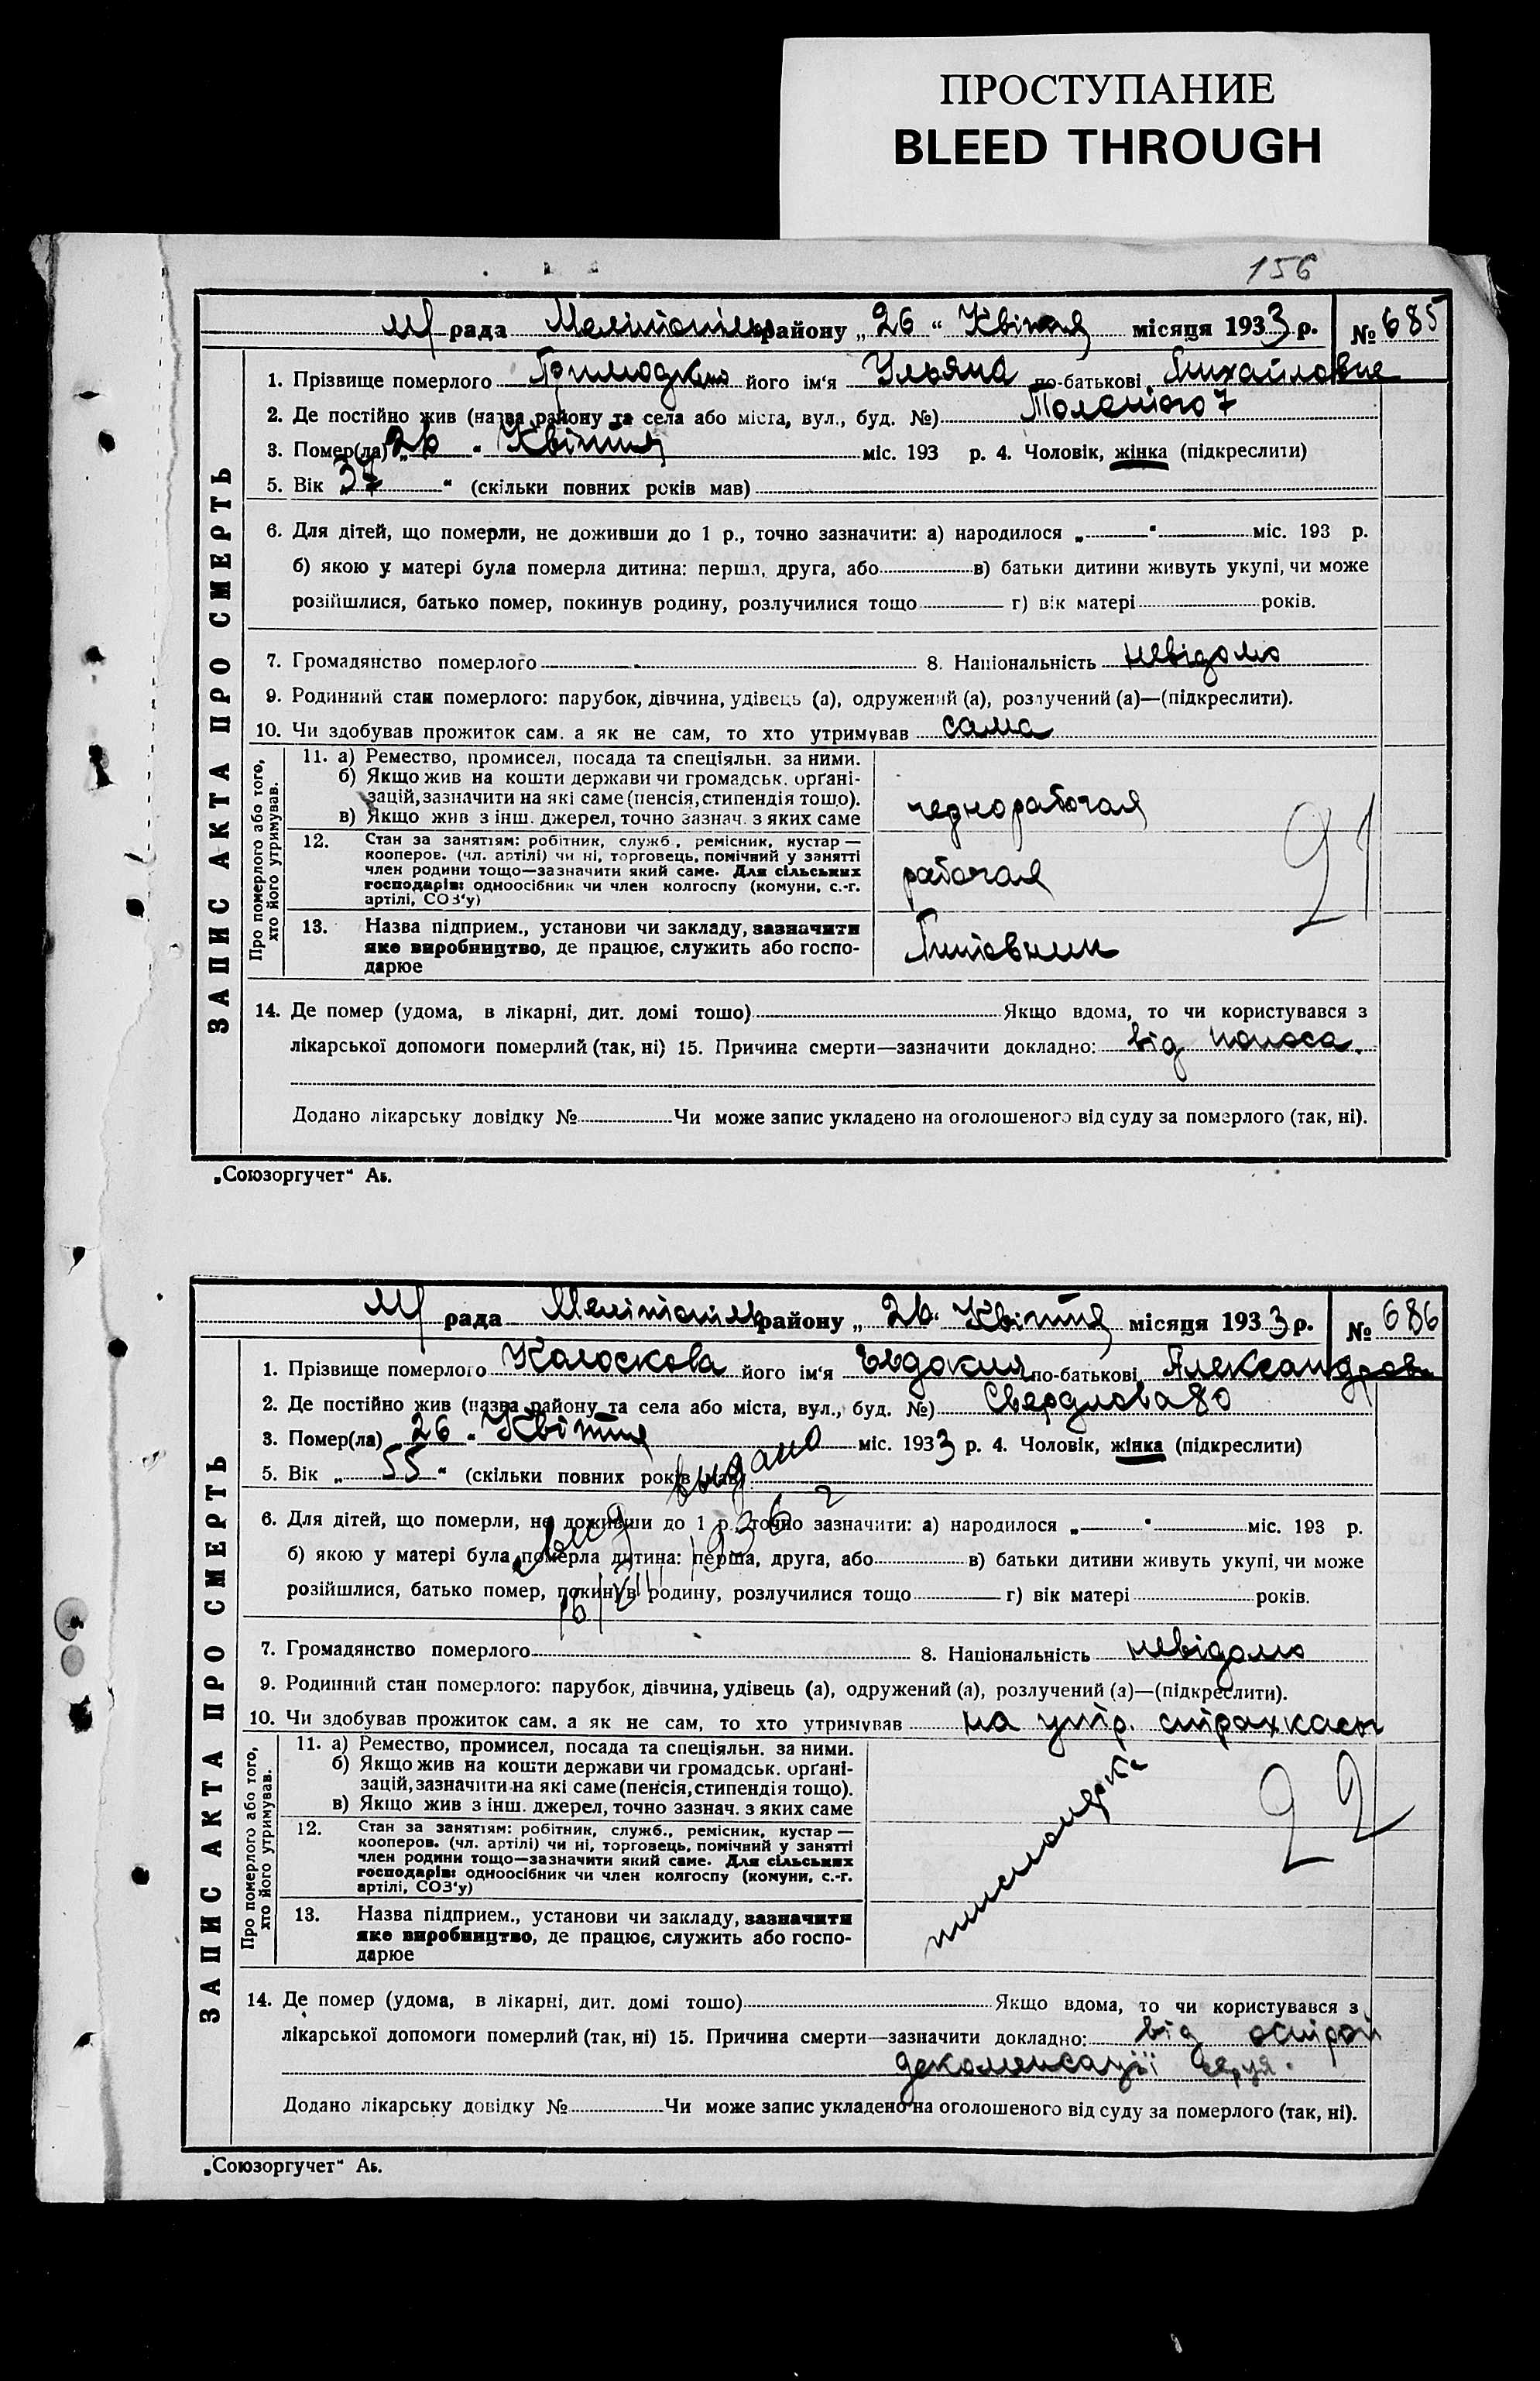 ПРОСТУПАНИЕ
BLEED THROUGH
156
рада Мелітопіль району „26“ Квітня місяця 1933 р. № 685
1. Прізвище померлого його ім‘я Ульяна по-батькові Михайловне
2. Де постійно жив (назва району та села або міста, вул., буд. №) 7
3. Помер(ла) „26“ Квітня міс. 193 р. 4. Чоловік, жінка (підкреслити)
5. Вік 37 “ (скільки повних років мав)
6. Для дітей, що померли, не доживши до 1 р., точно зазначити: а) народилося „ “ міс. 193 р.
б) якою у матері була померла дитина: перша, друга, або в) батьки дитини живуть укупі, чи може
розійшлися, батько помер, покинув родину, розлучилися тощо г) вік матері років.
7. Громадянство померлого - 8. Національність невідомо
9. Родинний стан померлого: парубок, дівчина, удівець (а), одружений (а), розлучений (а)—(підкреслити).
10. Чи здобував прожиток сам, а як не сам, то хто утримував сама
ЗАПИС АКТА ПРО СМЕРТЬ
Про померлого або того, хто його утримував.
11. а) Ремество, промисел, посада та спеціяльн. за ними.
б) Якщо жив на кошти держави чи громадськ. орґані-
зацій, зазначити на які саме (пенсія, стипендія тощо).
в) Якщо жив з інш. джерел, точно зазнач. з яких саме
чернорабочая
12. Стан за заняттям: робітник, служб., ремісник, кустар —
кооперов. (чл. артілі) чи ні, торговець, помічний у занятті
член родини тощо—зазначити який саме. Для сільських
господарів: одноосібник чи член колгоспу (комуни, с.-г.
артілі, СОЗ‘у)
рабочая
21
13. Назва підприєм., установи чи закладу, зазначити
яке виробництво, де працює, служить або госпо-
дарює
Питовник
14. Де помер (удома, в лікарні, дит. домі тощо) Якщо вдома, то чи користувався з
лікарської допомоги померлий (так, ні) 15. Причина смерти—зазначити докладно: від поноса.
Додано лікарську довідку № Чи може запис укладено на оголошеного від суду за померлого (так, ні).
„Союзоргучет“ Аь.
рада Мелітопіль району „26“ Квітня місяця 1933 р. № 686
1. Прізвище померлого Колоскова його ім‘я Евдокия по-батькові Александровн
2. Де постійно жив (назва району та села або міста, вул., буд. №) Свердлова 80
3. Помер(ла) 26 “ Квітня міс. 1933 р. 4. Чоловік, жінка (підкреслити)
5. Вік „ 55 “ (скільки повних років мав)
выдано
16/VIII 1936 г
6. Для дітей, що померли, не доживши до 1 р., точно зазначити: а) народилося „ “ міс. 193 р.
б) якою у матері була померла дитина: перша, друга, або в) батьки дитини живуть укупі, чи може
розійшлися, батько помер, покинув родину, розлучилися тощо г) вік матері років.
7. Громадянство померлого 8. Національність невідомо
9. Родинний стан померлого: парубок, дівчина, удівець (а), одружений (а), розлучений (а)—(підкреслити).
10. Чи здобував прожиток сам, а як не сам, то хто утримував на утр. страхкасы
ЗАПИС АКТА ПРО СМЕРТЬ
Про померлого або того, хто його утримував.
11. а) Ремество, промисел, посада та спеціяльн. за ними.
б) Якщо жив на кошти держави чи громадськ. орґані-
зацій, зазначити на які саме (пенсія, стипендія тощо).
в) Якщо жив з інш. джерел, точно зазнач. з яких саме
22
12. Стан за заняттям: робітник, служб., ремісник, кустар —
кооперов. (чл. артілі) чи ні, торговець, помічний у занятті
член родини тощо—зазначити який саме. Для сільських
господарів: одноосібник чи член колгоспу (комуни, с.-г.
артілі, СОЗ‘у)
13. Назва підприєм., установи чи закладу, зазначити
яке виробництво, де працює, служить або госпо-
дарює
14. Де помер (удома, в лікарні, дит. домі тощо) Якщо вдома, то чи користувався з
лікарської допомоги померлий (так, ні) 15. Причина смерти—зазначити докладно: від острой
декомпенсації серця.
Додано лікарську довідку № Чи може запис укладено на оголошеного від суду за померлого (так, ні).
„Союзоргучет“ Аь.